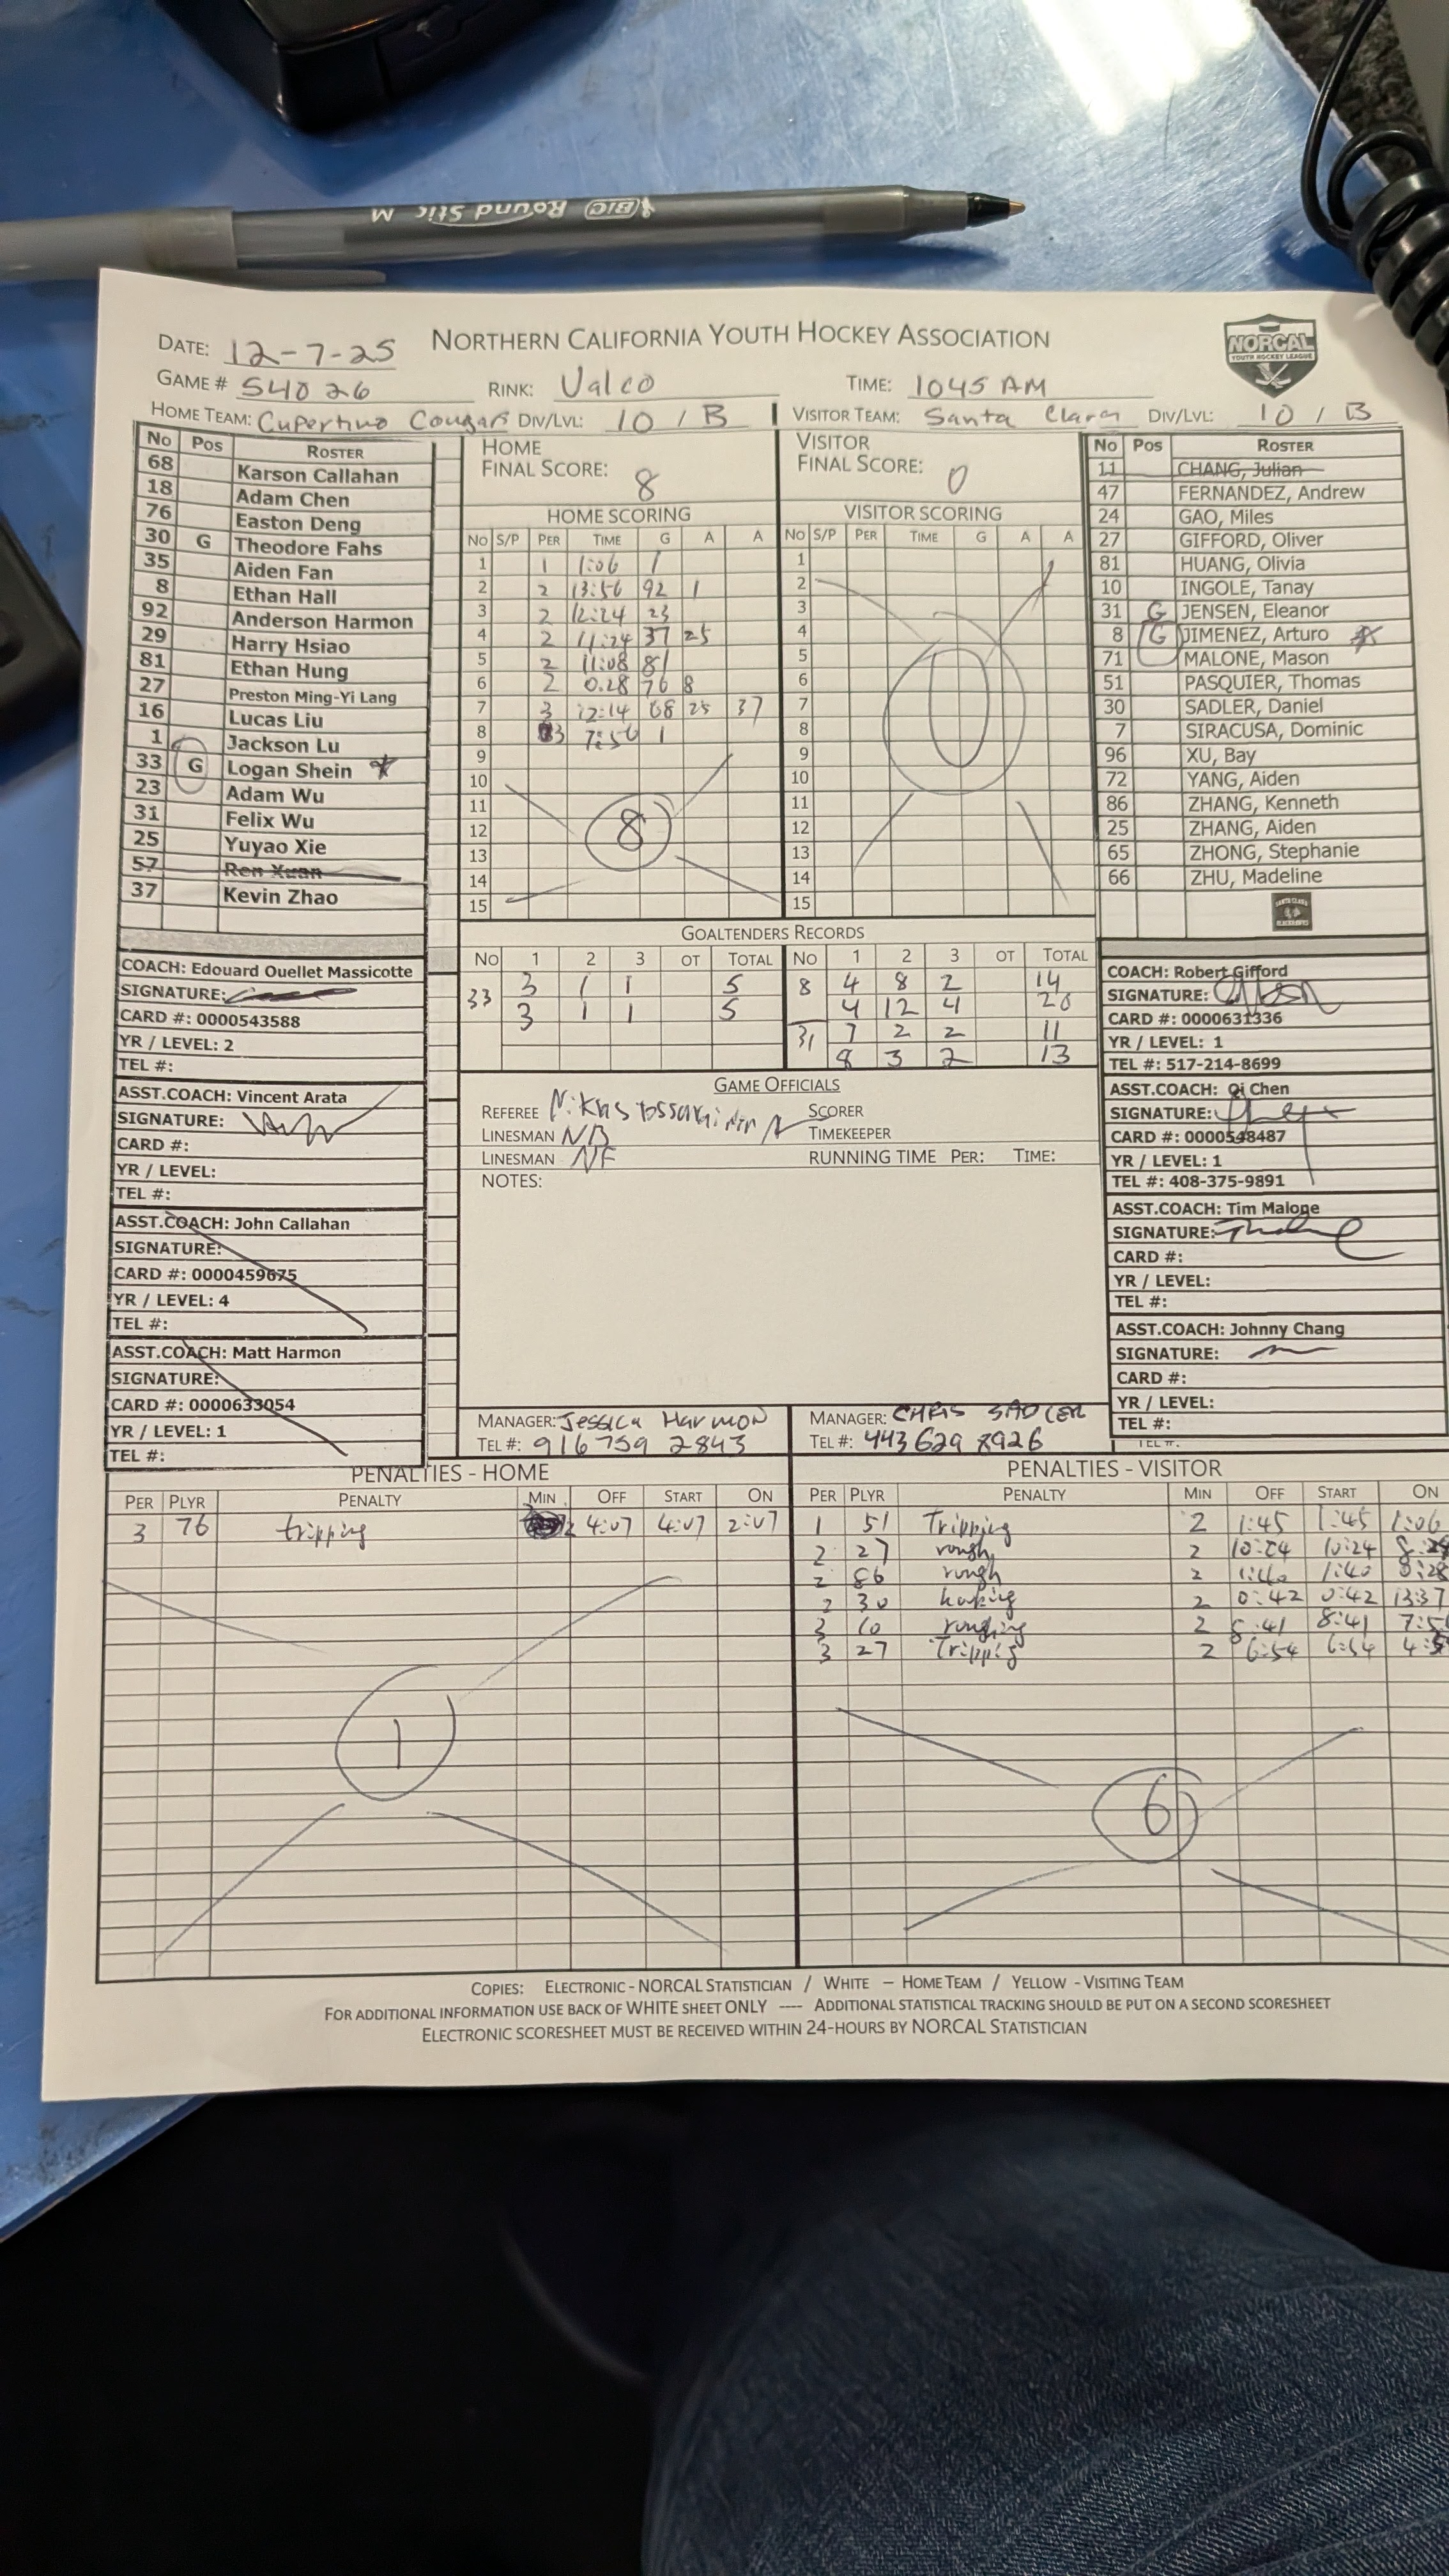 BIC Round Stic M
NORTHERN CALIFORNIA YOUTH HOCKEY ASSOCIATION
NORCAL
YOUTH HOCKEY LEAGUE
DATE: 12-7-25
GAME # 54026 RINK: Valco TIME: 1045 AM
HOME TEAM: Cupertino Cougars DIV/LVL: 10 / B VISITOR TEAM: Santa Clara DIV/LVL: 10 / B
No Pos ROSTER
68 Karson Callahan
18 Adam Chen
76 Easton Deng
30 G Theodore Fahs
35 Aiden Fan
8 Ethan Hall
92 Anderson Harmon
29 Harry Hsiao
81 Ethan Hung
27 Preston Ming-Yi Lang
16 Lucas Liu
1 Jackson Lu
33 G Logan Shein
23 Adam Wu
31 Felix Wu
25 Yuyao Xie
57 Ren Xuan
37 Kevin Zhao
HOME
FINAL SCORE: 8
HOME SCORING
NO S/P PER TIME G A A
1 1 1:06 1
2 2 13:56 92 1
3 2 12:24 23
4 2 11:24 37 25
5 2 11:08 81
6 2 0:28 76 8
7 3 12:14 68 25 37
8 3 7:56 1
9
10
11
12
13
14
15
8
VISITOR
FINAL SCORE: 0
VISITOR SCORING
NO S/P PER TIME G A A
1
2
3
4
5
6
7
8
9
10
11
12
13
14
15
0
No Pos ROSTER
11 CHANG, Julian
47 FERNANDEZ, Andrew
24 GAO, Miles
27 GIFFORD, Oliver
81 HUANG, Olivia
10 INGOLE, Tanay
31 G JENSEN, Eleanor
8 G JIMENEZ, Arturo
71 MALONE, Mason
51 PASQUIER, Thomas
30 SADLER, Daniel
7 SIRACUSA, Dominic
96 XU, Bay
72 YANG, Aiden
86 ZHANG, Kenneth
25 ZHANG, Aiden
65 ZHONG, Stephanie
66 ZHU, Madeline
GOALTENDERS RECORDS
NO 1 2 3 OT TOTAL NO 1 2 3 OT TOTAL
33 3 1 1 5 8 4 8 2 14
3 1 1 5 4 12 4 20
31 7 2 2 11
8 3 2 13
COACH: Edouard Ouellet Massicotte
SIGNATURE:
CARD #: 0000543588
YR / LEVEL: 2
TEL #:
ASST.COACH: Vincent Arata
SIGNATURE:
CARD #:
YR / LEVEL:
TEL #:
ASST.COACH: John Callahan
SIGNATURE:
CARD #: 0000459675
YR / LEVEL: 4
TEL #:
ASST.COACH: Matt Harmon
SIGNATURE:
CARD #: 0000633054
YR / LEVEL: 1
TEL #:
GAME OFFICIALS
REFEREE SCORER
LINESMAN NB TIMEKEEPER
LINESMAN NF RUNNING TIME PER: TIME:
NOTES:
MANAGER: Jessica Harmon
TEL #: 916 759 2843
MANAGER: CHRIS SADLER
TEL #: 443 629 8926
COACH: Robert Gifford
SIGNATURE:
CARD #: 0000631336
YR / LEVEL: 1
TEL #: 517-214-8699
ASST.COACH: Qi Chen
SIGNATURE:
CARD #: 0000548487
YR / LEVEL: 1
TEL #: 408-375-9891
ASST.COACH: Tim Malone
SIGNATURE:
CARD #:
YR / LEVEL:
TEL #:
ASST.COACH: Johnny Chang
SIGNATURE:
CARD #:
YR / LEVEL:
TEL #:
PENALTIES - HOME
PER PLYR PENALTY MIN OFF START ON
3 76 tripping 2 4:07 4:07 2:07
1
PENALTIES - VISITOR
PER PLYR PENALTY MIN OFF START ON
1 51 Tripping 2 1:45 1:45 1:06
2 27 rough 2 10:24 10:24
2 86 rough 2 1:40 1:40 0:28
2 30 hooking 2 0:42 0:42 13:37
3 10 roughing 2 8:41 8:41
3 27 Tripping 2 6:54 6:54
6
COPIES: ELECTRONIC - NORCAL STATISTICIAN / WHITE – HOME TEAM / YELLOW - VISITING TEAM
FOR ADDITIONAL INFORMATION USE BACK OF WHITE SHEET ONLY ---- ADDITIONAL STATISTICAL TRACKING SHOULD BE PUT ON A SECOND SCORESHEET
ELECTRONIC SCORESHEET MUST BE RECEIVED WITHIN 24-HOURS BY NORCAL STATISTICIAN